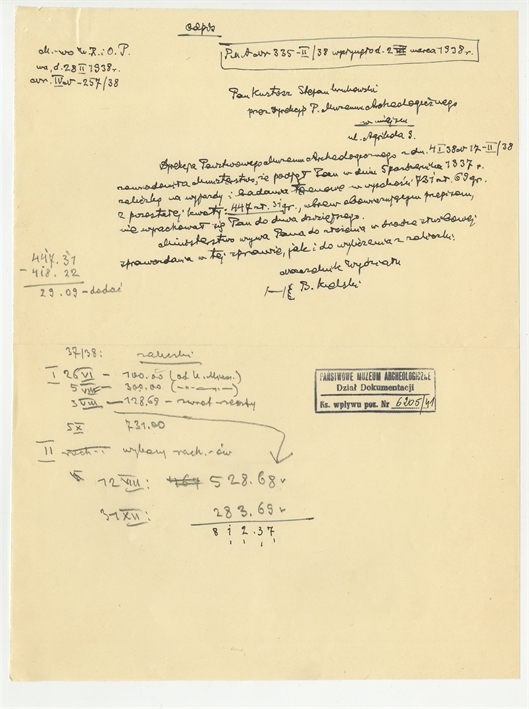 Odpis
M-wo W.R.i O.P.
wa, d. 28 II 1938 r.
nr. IV - 257/38
335-II/38 wpłynęło d. 2 marca 1938 r.
Pan Kustosz Stefan Krukowski
przez Dyrekcję P. Muzeum Archeologicznego
w miejscu
ul. Agrykola 9.
Dyrekcja Państwowego Muzeum Archeologicznego dn. 4 I 38 17-II/38
zawiadomiła Ministerstwo, że podjął Pan w dniu 5 października 1937 r.
zaliczkę na wyjazdy i badania terenowe w wysokości 731 zł. 69 gr.
z pozostałej kwoty 447 zł. 31 gr., wbrew obowiązującym przepisom,
nie wyrachował się Pan do dnia dzisiejszego.
Ministerstwo wzywa Pana do złożenia w drodze służbowej
sprawozdania w tej sprawie, jak i do wyliczenia z zaliczki.
Naczelnik Wydziału
/-/ B. Kielski
447.31
- 418.22
29.09 - dodać
37/38: zaliczki
I 26 VI - 100.00 (od K. )
5 VIII - 300.00
3 VIII - 128.69 - zwrot reszty
5 X 731.00
II wykazy rach.-ów
12 VIII: 528.68
31 XII: 283.69
812.37
PAŃSTWOWE MUZEUM ARCHEOLOGICZNE
Dział Dokumentacji
Ks. wpływu poz. Nr 6205/41